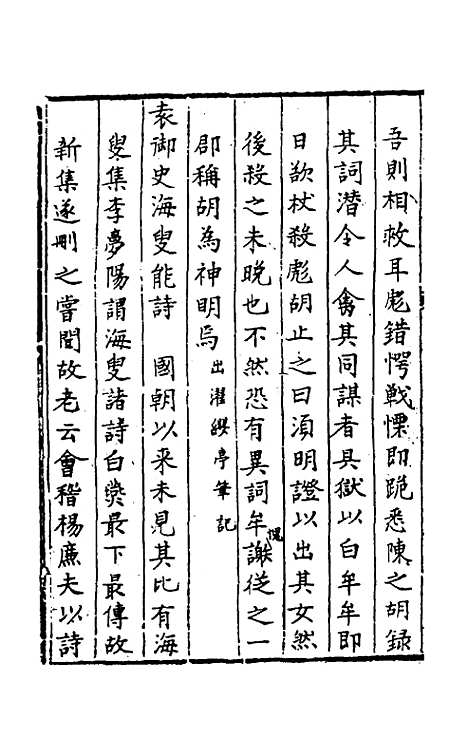 吾則相救耳彪錯愕戰慄即跪悉陳之胡録
其詞潜令人禽其同謀者具獄以白牟牟即
日欲杖殺彪胡止之曰湏明證以出其女然
後殺之未晩也不然恐有異詞牟愧謝從之一
郡稱胡為神明焉 出濯纓亭筆記
袁御史海叟能詩 國朝以来未見其比有海
叟集李夢陽謂海叟諸詩白燕最下最傳故
新集遂刪之嘗聞故老云會稽楊廉夫以詩